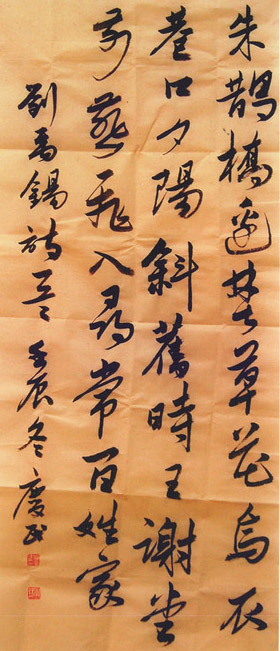 朱鵲橋邊埜草花烏衣
巷口夕陽斜舊時王謝堂
前燕飛入尋常百姓家
劉禹錫詩 壬辰冬 慶